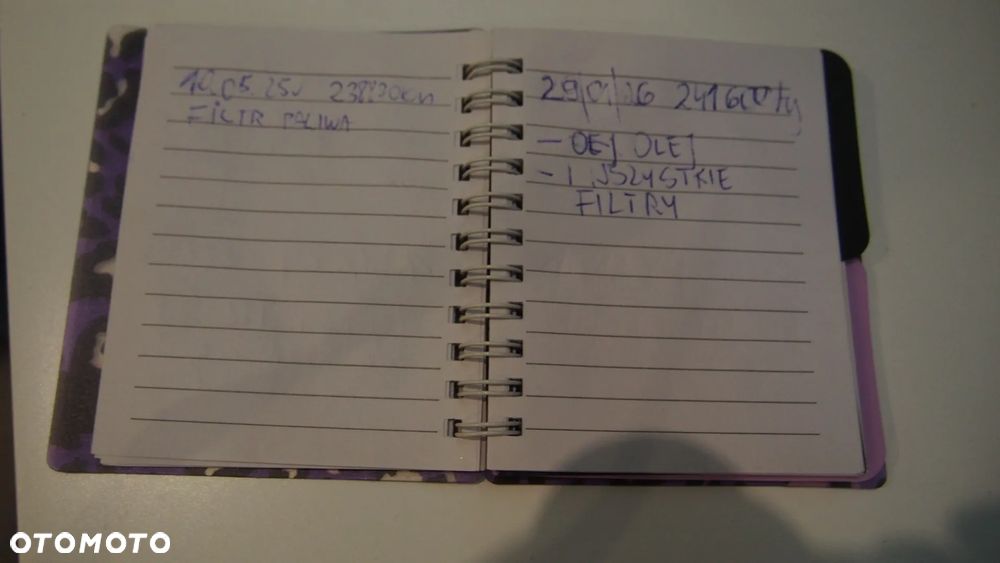 10.05.25r
FILTR PALIWA
29/01/26
- OEJ OLEJ
- I WSZYSTKIE
FILTRY
OTOMOTO